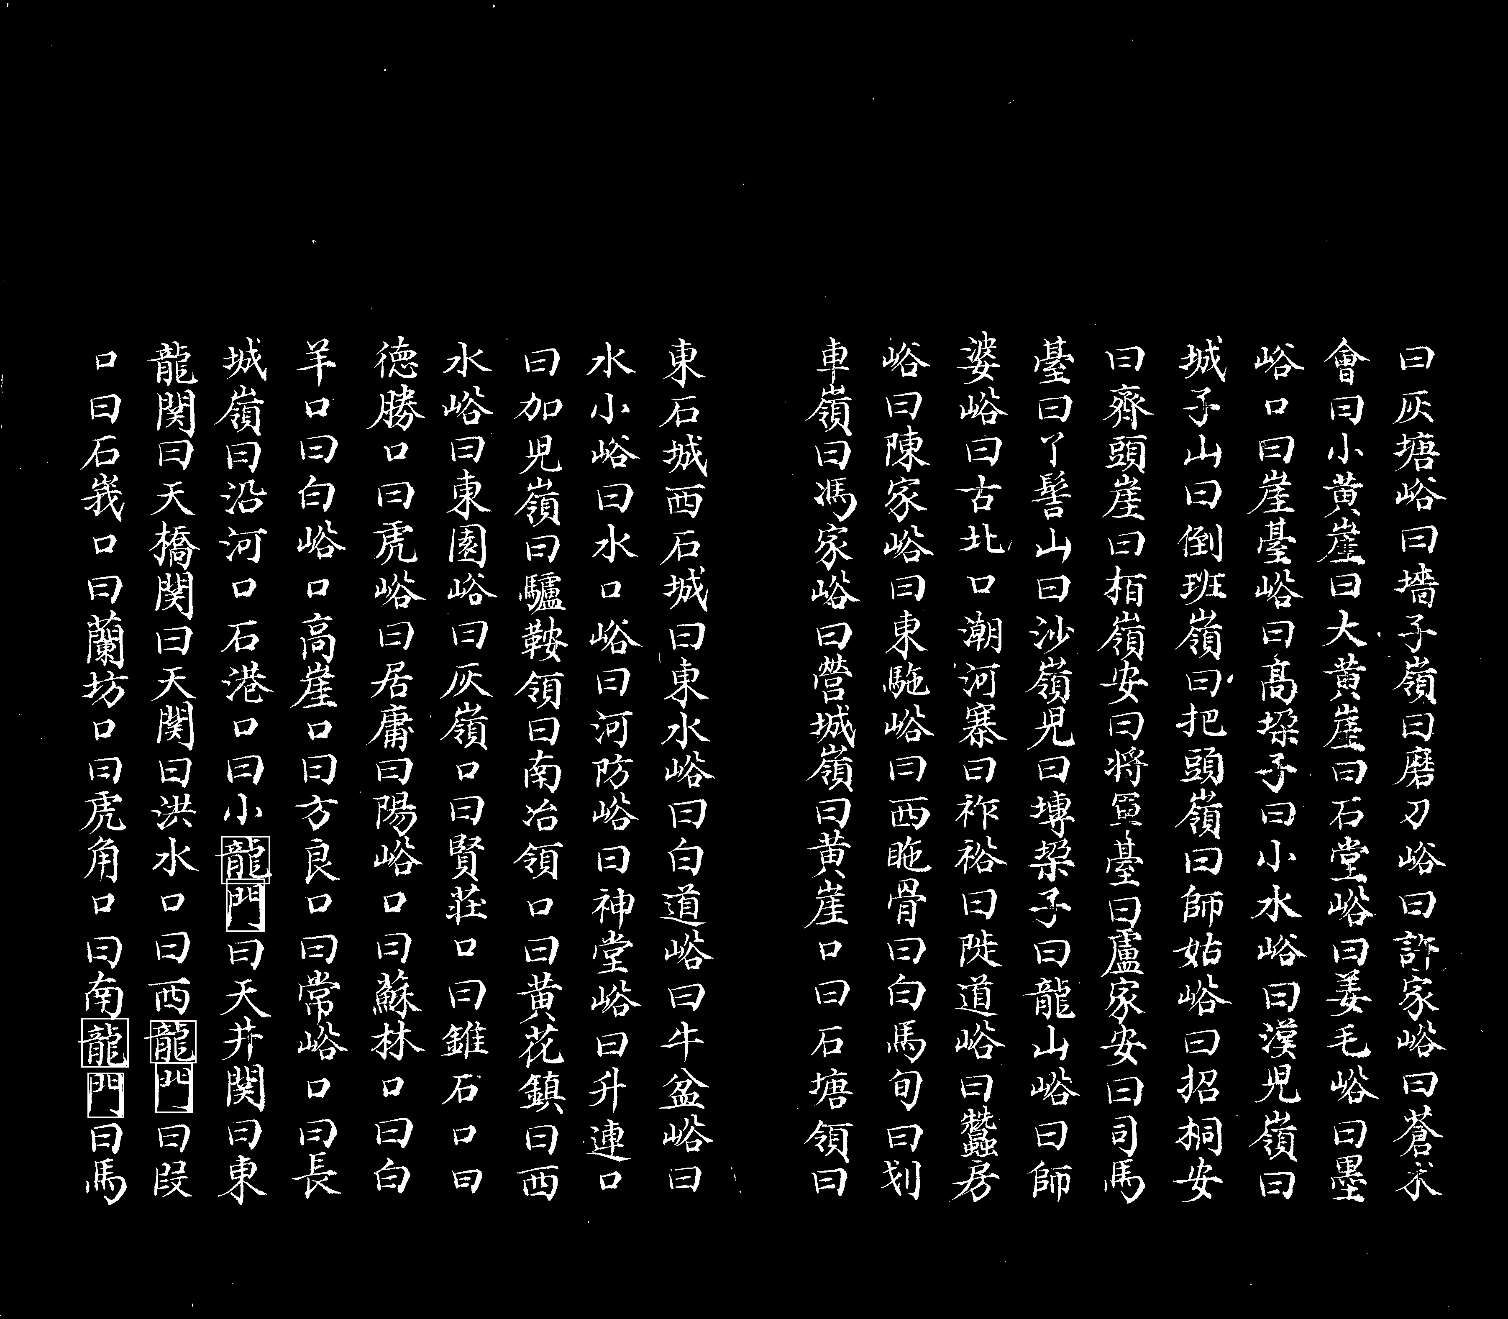 曰灰塘峪曰墻子嶺曰磨刀峪曰許家峪曰蒼术
會曰小黄崖曰大黄崖曰石堂峪曰姜毛峪曰墨
峪口曰崖臺峪曰高垜子曰小水峪曰漢児嶺曰
城子山曰倒班嶺曰把頭嶺曰師姑峪曰招桐安
曰齊頭崖曰栢嶺安曰将軍臺曰盧家安曰司馬
臺曰丫髻山曰沙嶺児曰塼垜子曰龍山峪曰師
婆峪曰古北口潮河寨曰祚裕曰陡道峪曰蠶房
峪曰陳家峪曰東駞峪曰西駞骨曰白馬甸曰划
車嶺曰馮家峪曰營城嶺曰黄崖口曰石塘領曰
東石城西石城曰東水峪曰白道峪曰牛盆峪曰
水小峪曰水口峪曰河防峪曰神堂峪曰升連口
曰加児嶺曰驢鞍領曰南冶領口曰黄花鎮曰西
水峪曰東園峪曰灰嶺口曰賢莊口曰錐石口曰
徳勝口曰虎峪曰居庸曰陽峪口曰蘇林口曰白
羊口曰白峪口高崖口曰方良口曰常峪口曰長
城嶺曰沿河口石港口曰小龍門曰天井関曰東
龍関曰天橋関曰天関曰洪水口曰西龍門曰段
口曰石峩口曰蘭坊口曰虎角口曰南龍門曰馬